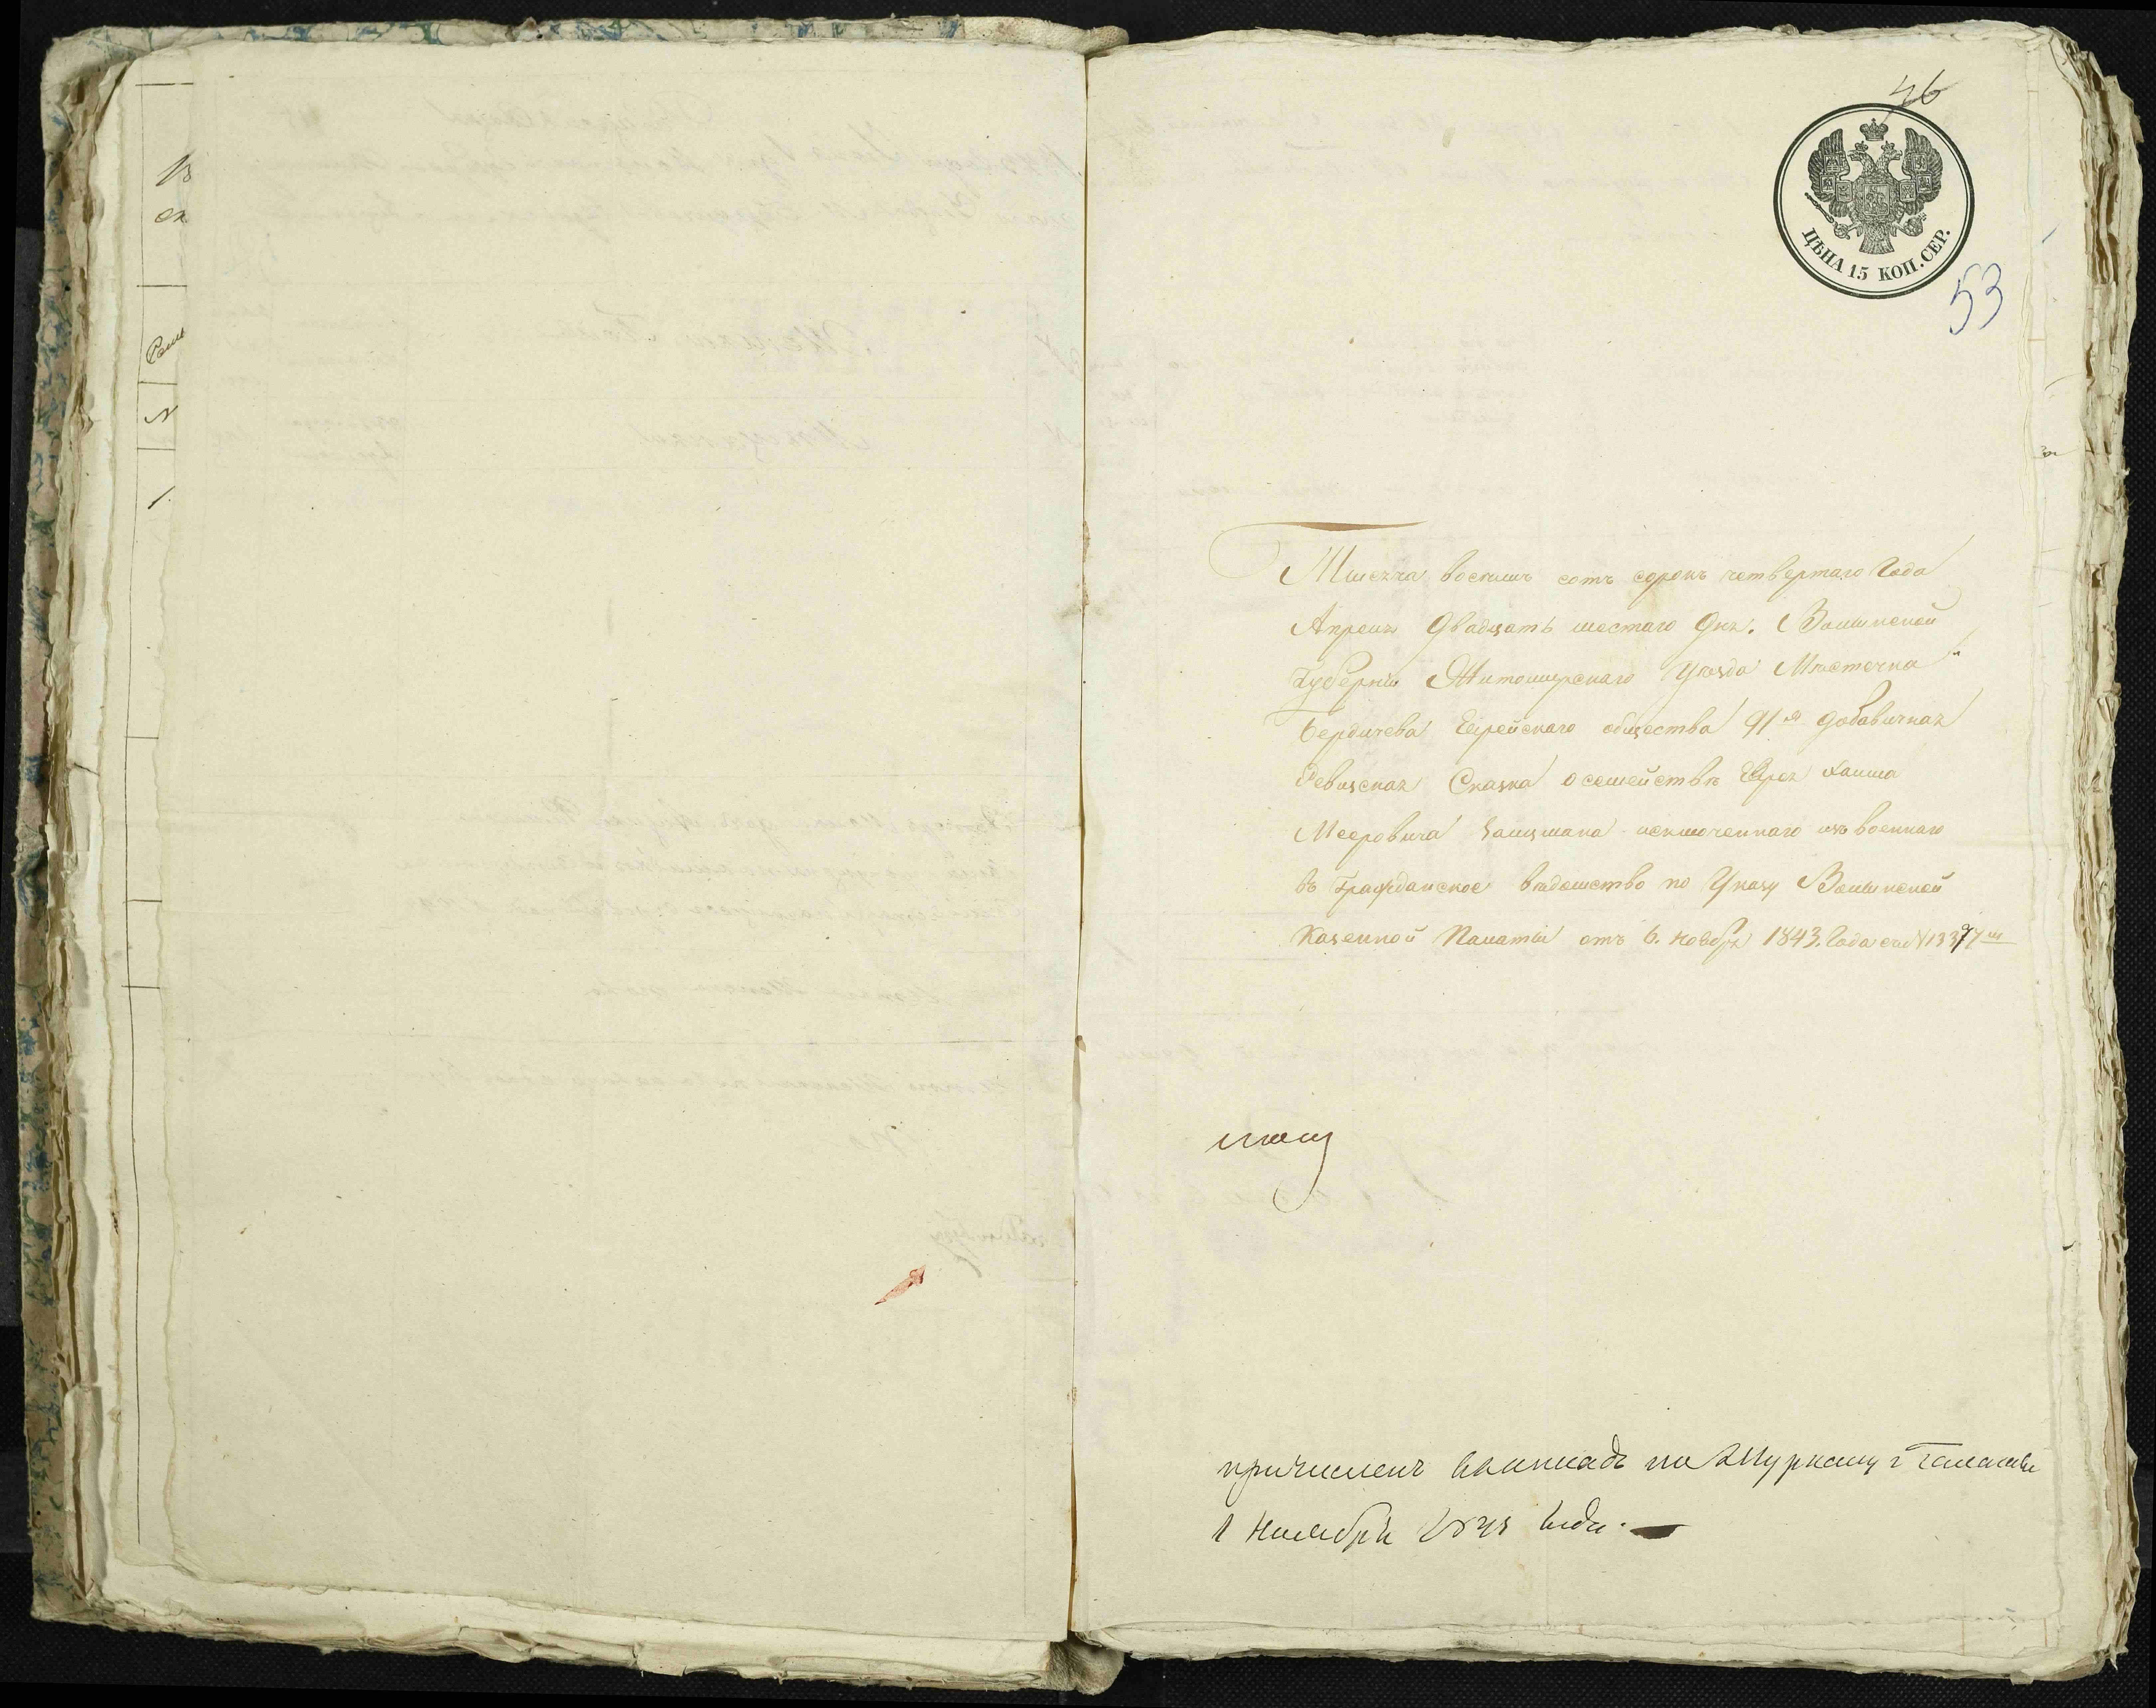 46
ЦѢНА 15 КОП. СЕР.
53
Тысяча восемь сотъ сорокъ четвертаго Года
Апреля двадцать шестаго дня. Волынской
Губерніи Житомирскаго Уѣзда Мѣстечка
Бердичева Еврейскаго общества 91я добавичная
Ревизская Сказка о семействѣ Еврея Хаима
Мееровича исключеннаго изъ военнаго
въ Гражданское вѣдомство по Указу Волынской
Казенной Палаты отъ 6. Ноября 1843. Года
причисленъ по Журналу Палаты
1 Ноября года.